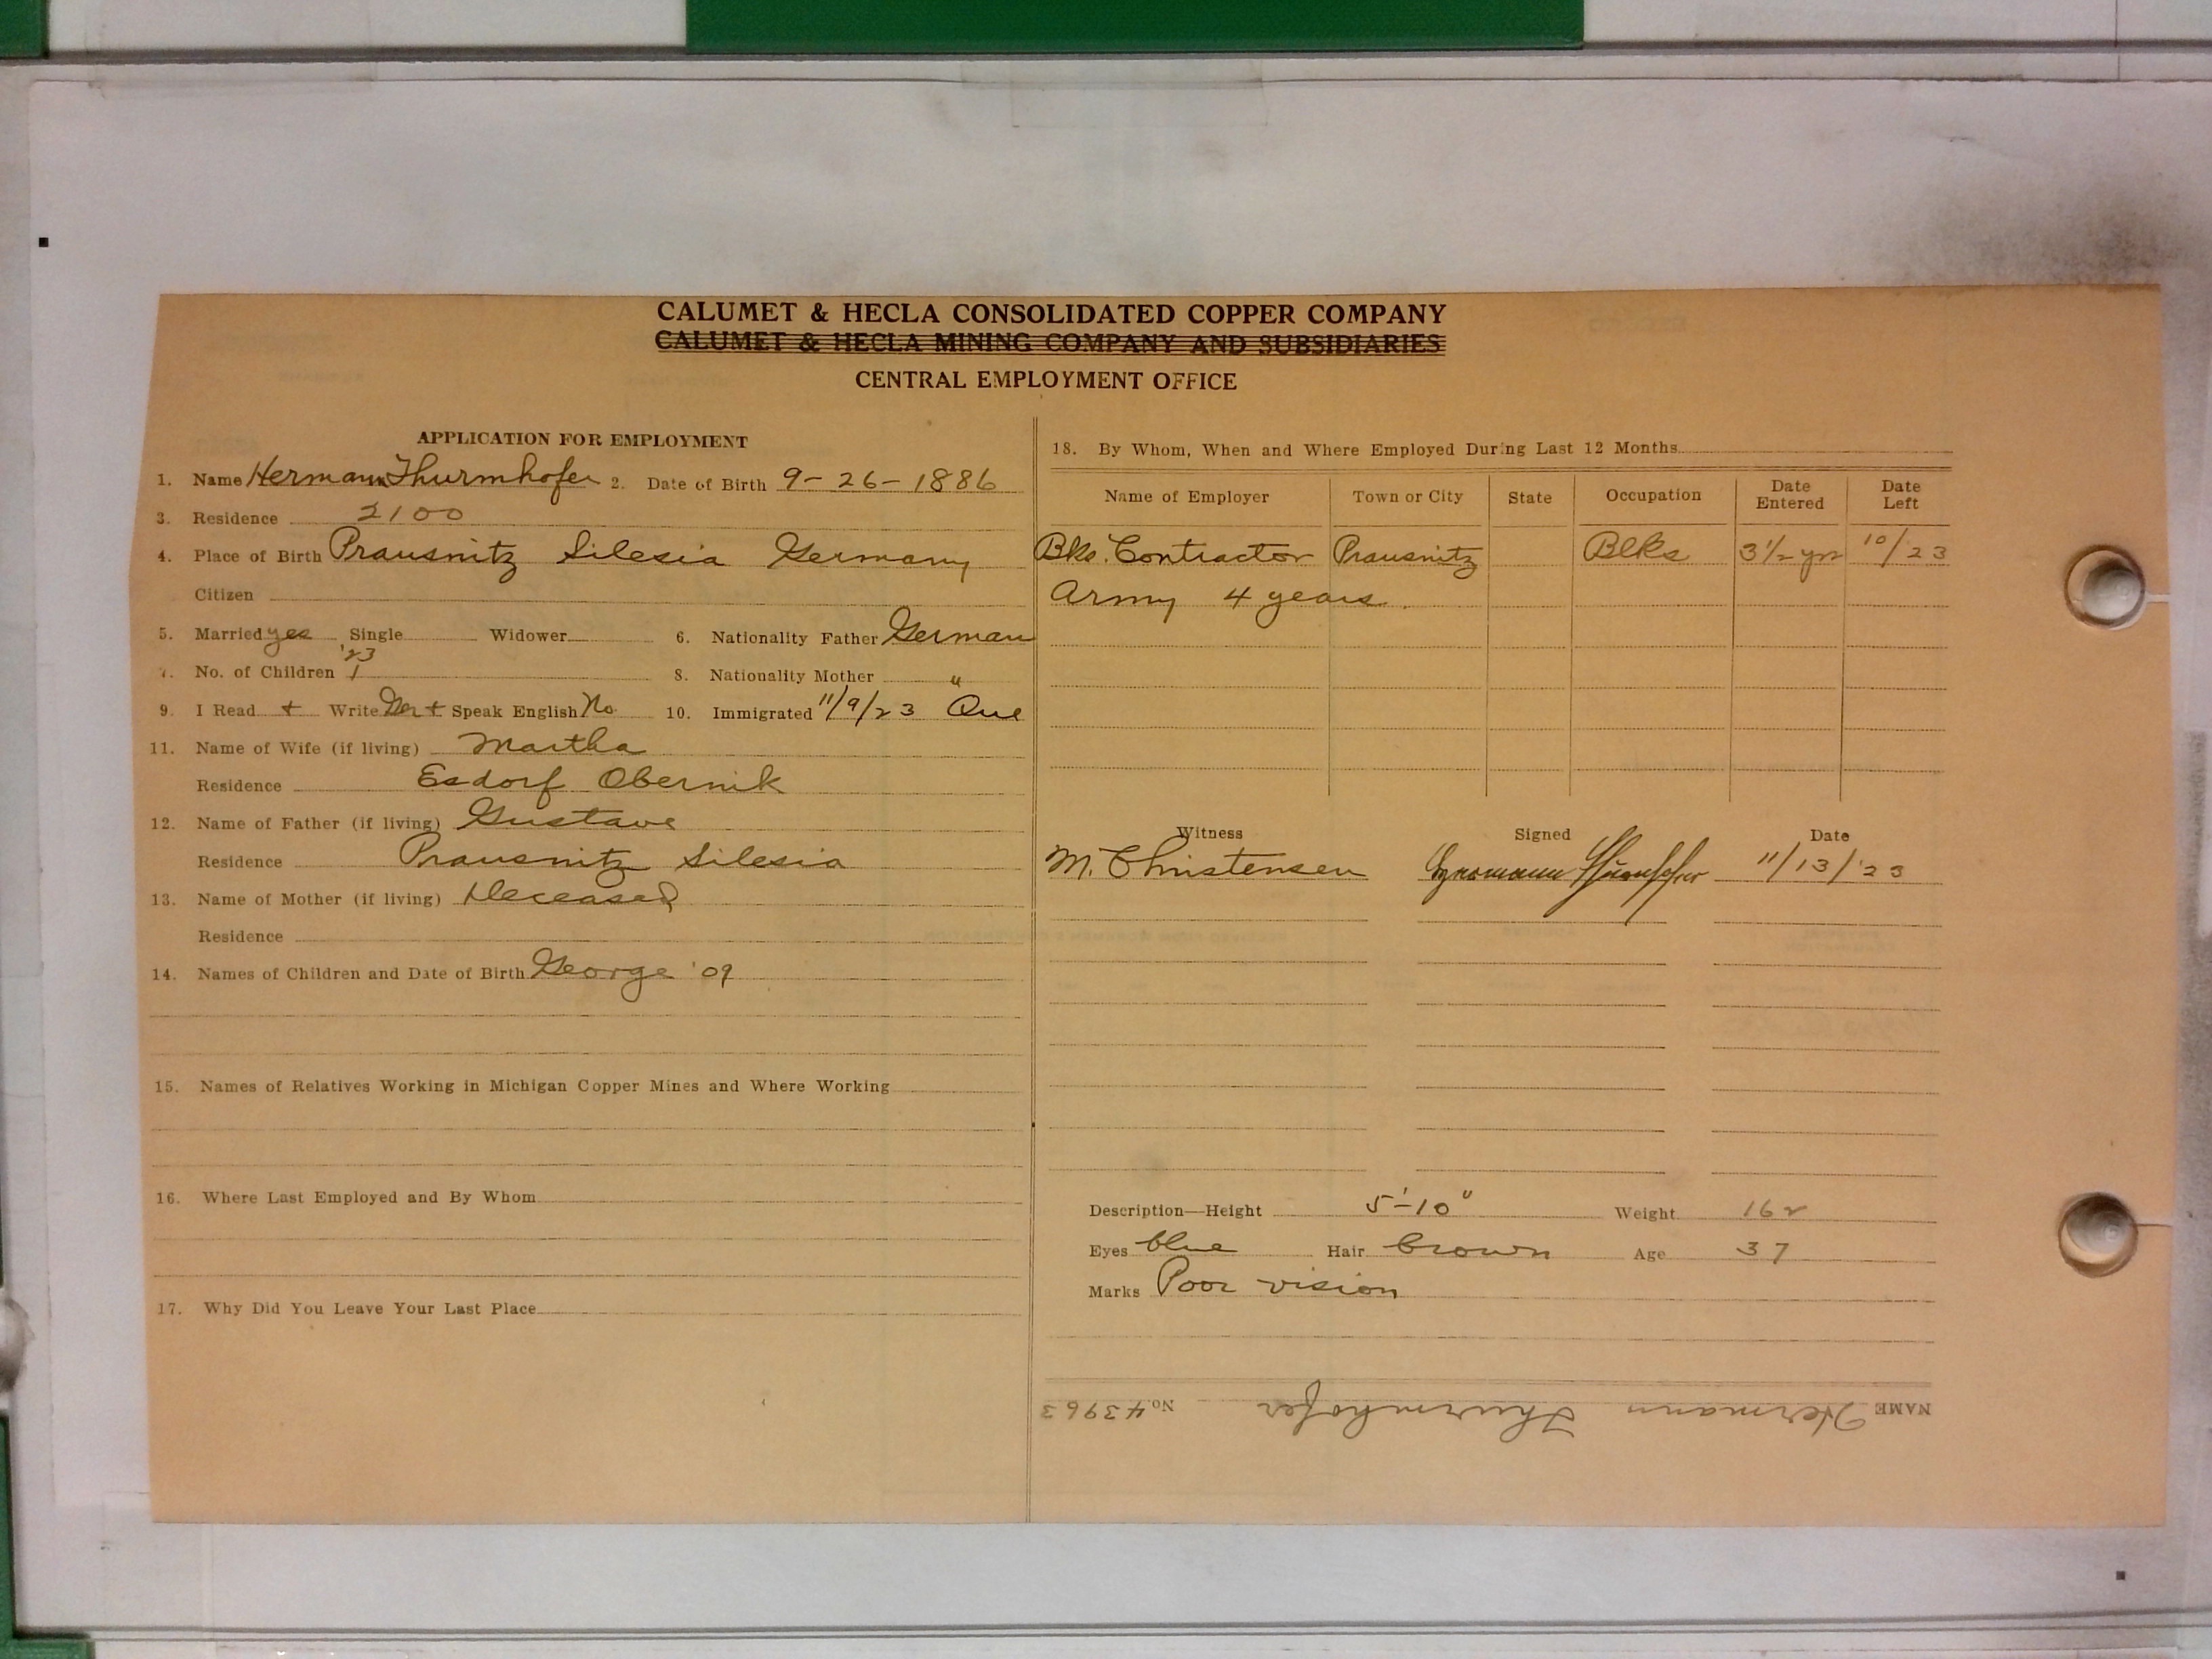 CALUMET & HECLA CONSOLIDATED COPPER COMPANY
CALUMET & HECLA MINING COMPANY AND SUBSIDIARIES
CENTRAL EMPLOYMENT OFFICE
APPLICATION FOR EMPLOYMENT
1. Name Hermann Thurmhofer 2. Date of Birth 9-26-1886
3. Residence 2100
4. Place of Birth Prausnitz Silesia Germany
Citizen
5. Married yes Single Widower 6. Nationality Father German
'23
7. No. of Children 1 8. Nationality Mother "
9. I Read + Write Ger + Speak English No 10. Immigrated 11/9/23 Que
11. Name of Wife (if living) Martha
Residence Esdorf Obernik
12. Name of Father (if living) Gustave
Residence Prausnitz Silesia
13. Name of Mother (if living) Deceased
Residence
14. Names of Children and Date of Birth George '09
15. Names of Relatives Working in Michigan Copper Mines and Where Working
16. Where Last Employed and By Whom
17. Why Did You Leave Your Last Place
18. By Whom, When and Where Employed During Last 12 Months
Name of Employer Town or City State Occupation Date Entered Date Left
Bks. Contractor Prausnitz Blks 3½ yr 10/23
Army 4 years
Witness Signed Date
M. Christensen Hermann Thurmhofer 11/13/'23
Description—Height 5'-10" Weight 162
Eyes blue Hair brown Age 37
Marks Poor vision
NAME Hermann Thurmhofer No. 43963